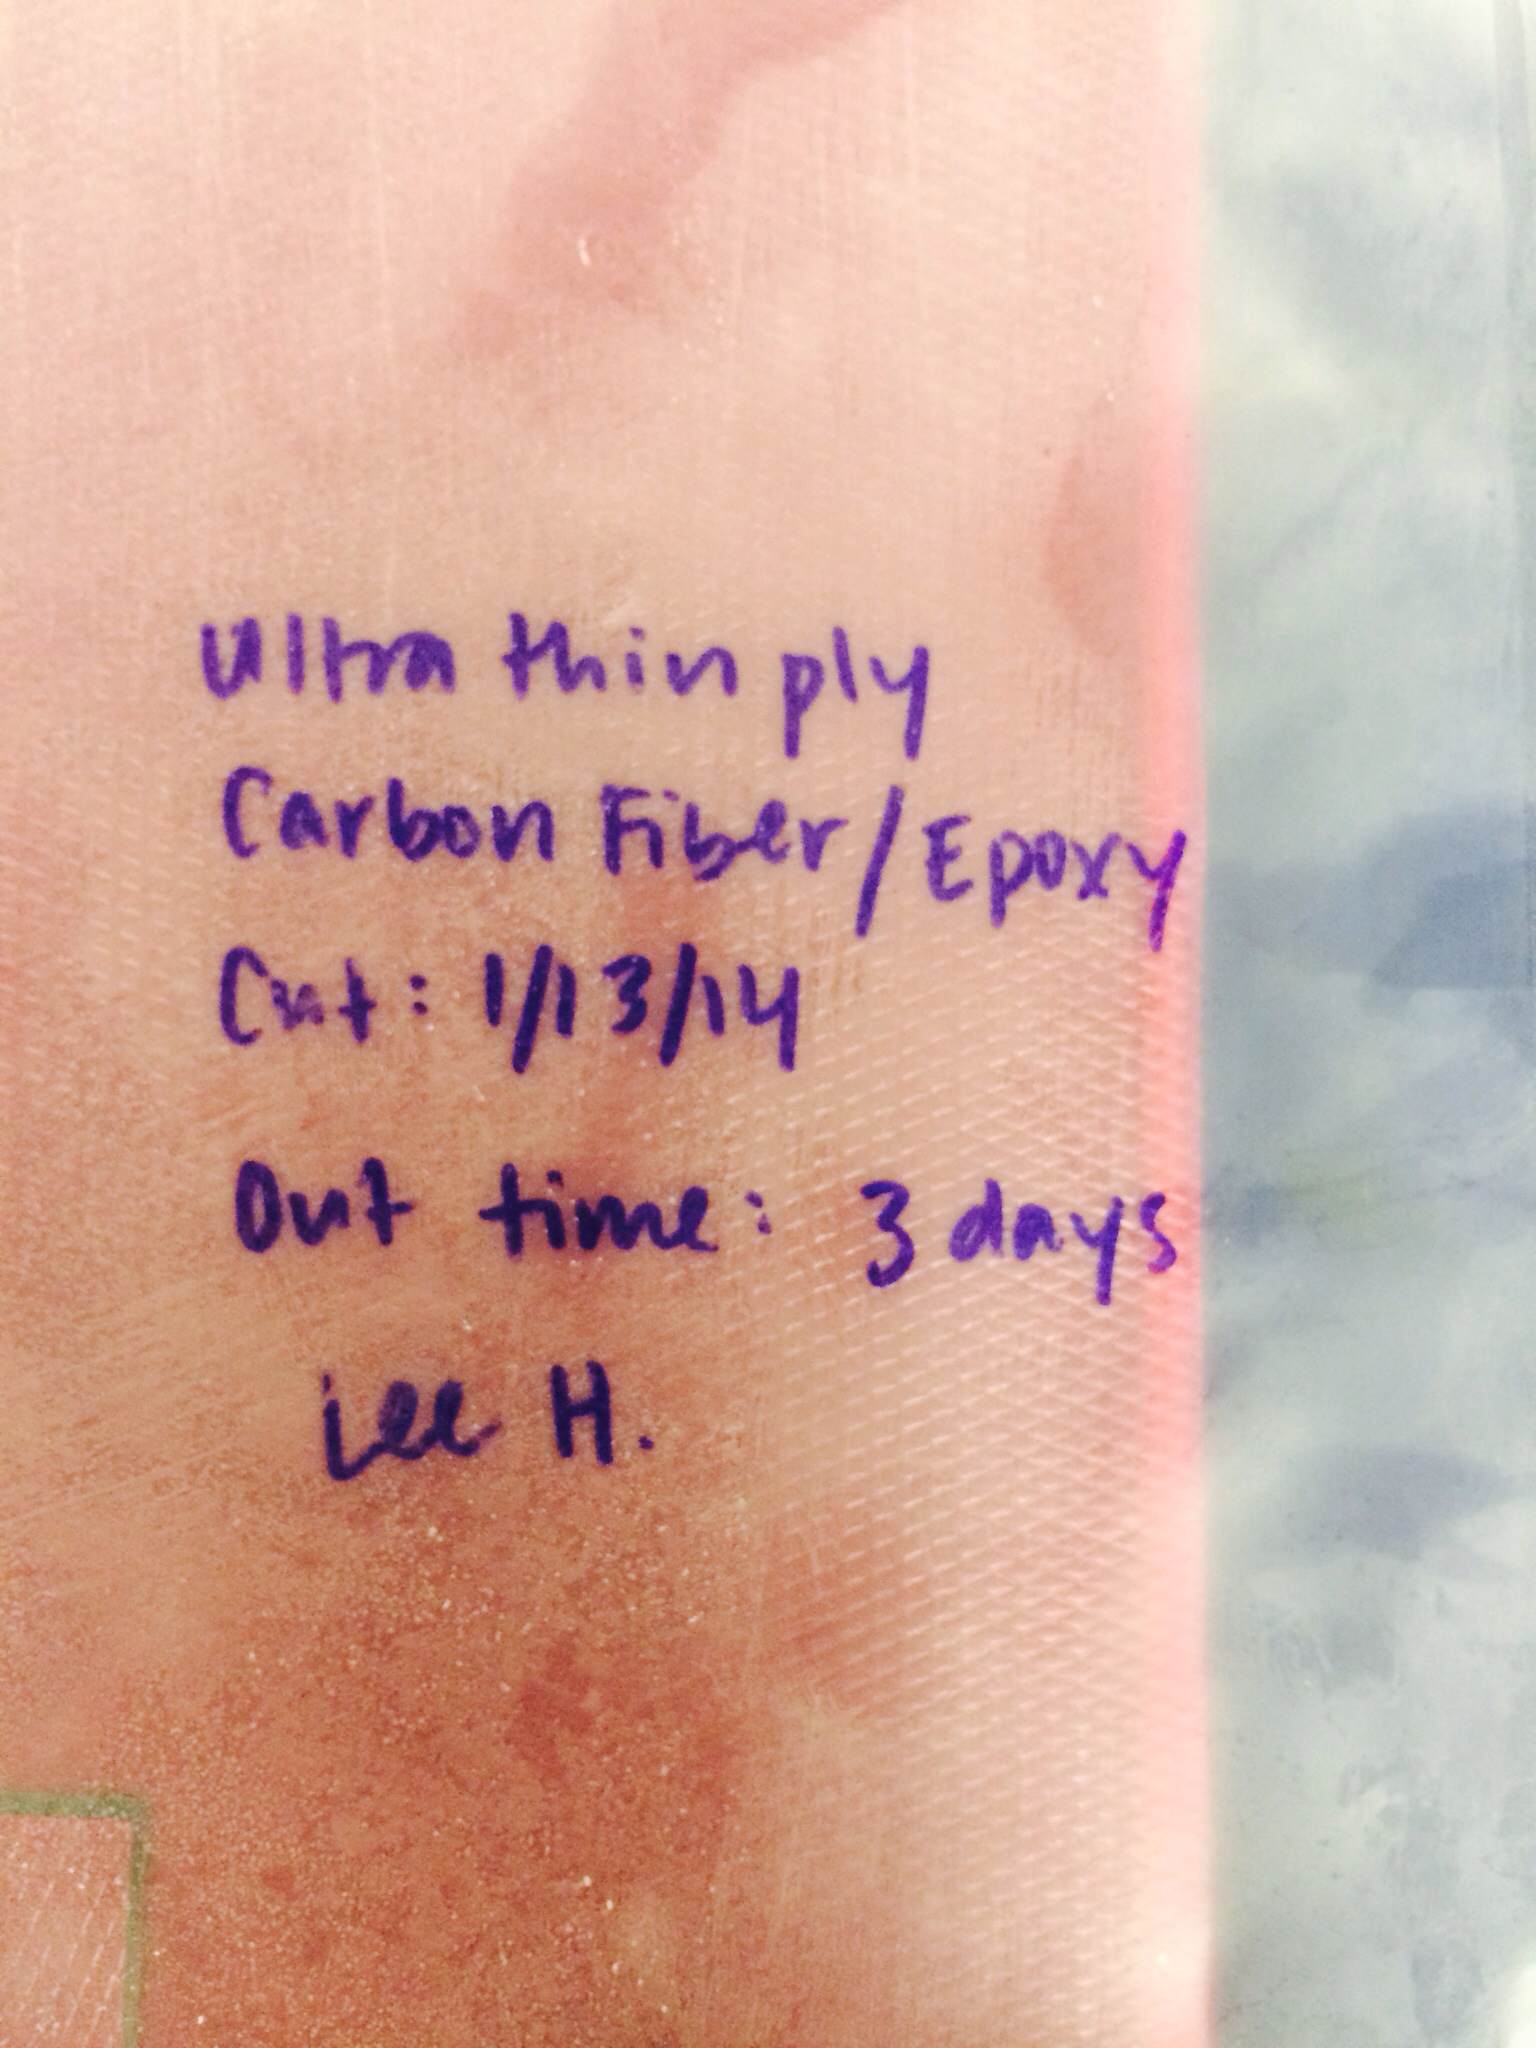 Ultra thin ply
Carbon Fiber/Epoxy
Cut: 1/13/14
Out time: 3 days
Lee H.